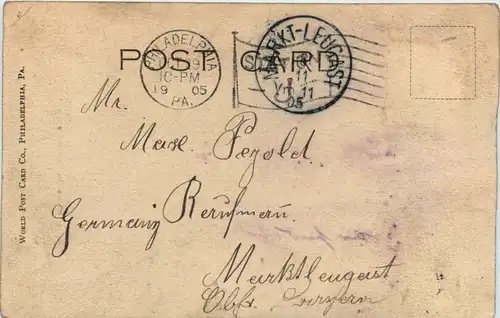 POST CARD
PHILADELPHIA
9
10-PM
19 05
PA.
MARKT-LEUGAST
11
VM 11
05
Mr.
Max Pezold.
Germany
Marktleugast
Obfr. Bayern
WORLD POST CARD CO., PHILADELPHIA, PA.